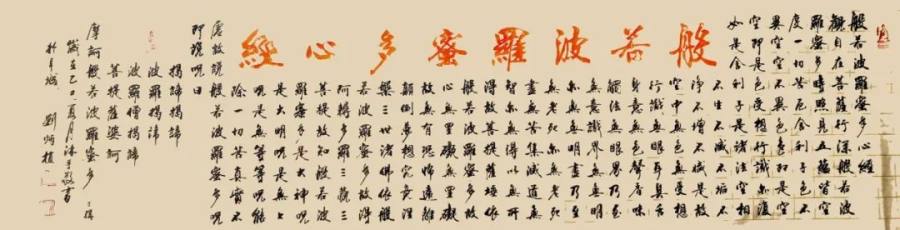 般若波羅蜜多心經
般若波羅蜜多心經
觀自在菩薩行深般若波
羅蜜多時照見五蘊皆空
度一切苦厄舍利子色不
異空空不異色色即是空
空即是色受想行識亦復
如是舍利子是諸法空相
不生不滅不垢不
淨不增不減是故
空中無色無受想
行識無眼耳鼻舌
身意無色聲香味
觸法無眼界乃至
無意識界無無明
亦無無明盡乃至
無老死亦無老死
盡無苦集滅道無
智亦無得以無所
得故菩提薩埵依
般若波羅蜜多故
心無罣礙無罣礙
故無有恐怖遠離
顛倒夢想究竟涅
槃三世諸佛依般
若波羅蜜多故得
阿耨多羅三藐三
菩提故知般若波
羅蜜多是大神呪
是大明呪是無上
呪是無等等呪能
除一切苦真實不
虛故說般若波羅蜜多呪
即說呪曰
揭諦揭諦
波羅揭諦
波羅僧揭諦
菩提薩婆訶
摩訶般若波羅蜜多
夏月沐手敬書
劉炳植